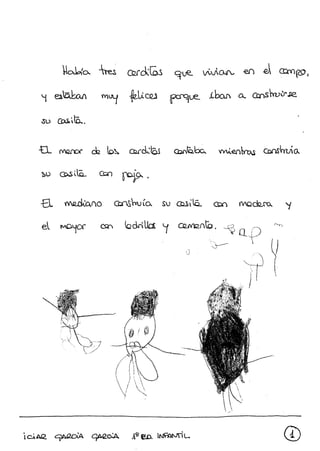 Había tres cerditos que vivían en el campo,
y estaban muy felices porque iban a construirse
su casita.
EL menor de los cerditos cantaba mientras construía
su casita con paja.
EL mediano construía su casita con madera y
el mayor con ladrillos y cemento.
iCiAR GARCÍA GARCÍA 1º ED. INFANTIL
1